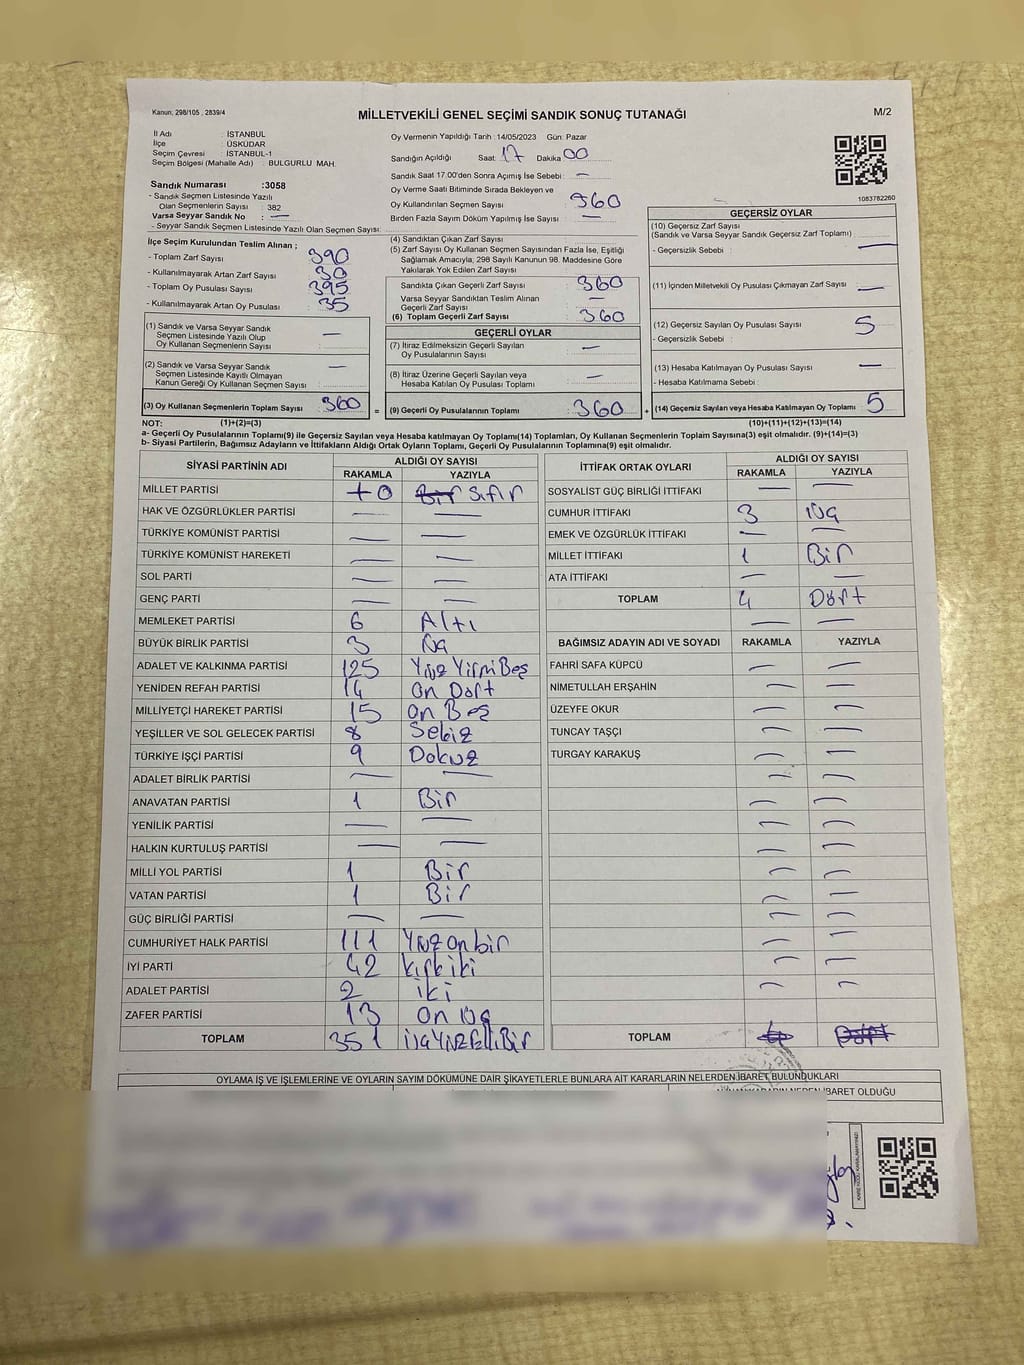 Kanun; 298/105 , 2839/4
MİLLETVEKİLİ GENEL SEÇİMİ SANDIK SONUÇ TUTANAĞI
M/2
İl Adı : İSTANBUL
İlçe : ÜSKÜDAR
Seçim Çevresi : İSTANBUL-1
Seçim Bölgesi (Mahalle Adı) : BULGURLU MAH.
Sandık Numarası :3058
- Sandık Seçmen Listesinde Yazılı
Olan Seçmenlerin Sayısı : 382
Varsa Seyyar Sandık No : —
- Seyyar Sandık Seçmen Listesinde Yazılı Olan Seçmen Sayısı:
Oy Vermenin Yapıldığı Tarih :14/05/2023 Gün: Pazar
Sandığın Açıldığı Saat: 17 Dakika 00
Sandık Saat 17.00'den Sonra Açımış İse Sebebi : —
Oy Verme Saati Bitiminde Sırada Bekleyen ve
Oy Kullandırılan Seçmen Sayısı : 360
Birden Fazla Sayım Döküm Yapılmış İse Sayısı : —
1083782260
İlçe Seçim Kurulundan Teslim Alınan ;
- Toplam Zarf Sayısı : 390
- Kullanılmayarak Artan Zarf Sayısı : 30
- Toplam Oy Pusulası Sayısı : 395
- Kullanılmayarak Artan Oy Pusulası : 35
(1) Sandık ve Varsa Seyyar Sandık
Seçmen Listesinde Yazılı Olup
Oy Kullanan Seçmenlerin Sayısı : —
(2) Sandık ve Varsa Seyyar Sandık
Seçmen Listesinde Kayıtlı Olmayan
Kanun Gereği Oy Kullanan Seçmen Sayısı : —
(3) Oy Kullanan Seçmenlerin Toplam Sayısı : 360
(4) Sandıktan Çıkan Zarf Sayısı :
(5) Zarf Sayısı Oy Kullanan Seçmen Sayısından Fazla İse, Eşitliği
Sağlamak Amacıyla, 298 Sayılı Kanunun 98. Maddesine Göre
Yakılarak Yok Edilen Zarf Sayısı :
Sandıkta Çıkan Geçerli Zarf Sayısı : 360
Varsa Seyyar Sandıktan Teslim Alınan
Geçerli Zarf Sayısı : —
(6) Toplam Geçerli Zarf Sayısı : 360
GEÇERLİ OYLAR
(7) İtiraz Edilmeksizin Geçerli Sayılan
Oy Pusulalarının Sayısı : —
(8) İtiraz Üzerine Geçerli Sayılan veya
Hesaba Katılan Oy Pusulası Toplamı : —
= (9) Geçerli Oy Pusulalarının Toplamı : 360
GEÇERSİZ OYLAR
(10) Geçersiz Zarf Sayısı
(Sandık ve Varsa Seyyar Sandık Geçersiz Zarf Toplamı) :
- Geçersizlik Sebebi : —
(11) İçinden Milletvekili Oy Pusulası Çıkmayan Zarf Sayısı : —
(12) Geçersiz Sayılan Oy Pusulası Sayısı : 5
- Geçersizlik Sebebi :
(13) Hesaba Katılmayan Oy Pusulası Sayısı : —
- Hesaba Katılmama Sebebi :
+ (14) Geçersiz Sayılan veya Hesaba Katılmayan Oy Toplamı : 5
NOT: (1)+(2)=(3) (10)+(11)+(12)+(13)=(14)
a- Geçerli Oy Pusulalarının Toplamı(9) ile Geçersiz Sayılan veya Hesaba katılmayan Oy Toplamı(14) Toplamları, Oy Kullanan Seçmenlerin Toplam Sayısına(3) eşit olmalıdır. (9)+(14)=(3)
b- Siyasi Partilerin, Bağımsız Adayların ve İttifakların Aldığı Ortak Oyların Toplamı, Geçerli Oy Pusulalarının Toplamına(9) eşit olmalıdır.
SİYASİ PARTİNİN ADI ALDIĞI OY SAYISI
RAKAMLA YAZIYLA
MİLLET PARTİSİ 0 Bir Sıfır
HAK VE ÖZGÜRLÜKLER PARTİSİ — —
TÜRKİYE KOMÜNİST PARTİSİ — —
TÜRKİYE KOMÜNİST HAREKETİ — —
SOL PARTİ — —
GENÇ PARTİ — —
MEMLEKET PARTİSİ 6 Altı
BÜYÜK BİRLİK PARTİSİ 3 Üç
ADALET VE KALKINMA PARTİSİ 125 Yüz Yirmi Beş
YENİDEN REFAH PARTİSİ 14 On Dört
MİLLİYETÇİ HAREKET PARTİSİ 15 On Beş
YEŞİLLER VE SOL GELECEK PARTİSİ 8 Sekiz
TÜRKİYE İŞÇİ PARTİSİ 9 Dokuz
ADALET BİRLİK PARTİSİ — —
ANAVATAN PARTİSİ 1 Bir
YENİLİK PARTİSİ — —
HALKIN KURTULUŞ PARTİSİ — —
MİLLİ YOL PARTİSİ 1 Bir
VATAN PARTİSİ 1 Bir
GÜÇ BİRLİĞİ PARTİSİ — —
CUMHURİYET HALK PARTİSİ 111 Yüz on bir
İYİ PARTİ 42 kırk iki
ADALET PARTİSİ 2 iki
ZAFER PARTİSİ 13 On üç
TOPLAM 351 üç Yüz Elli Bir
İTTİFAK ORTAK OYLARI ALDIĞI OY SAYISI
RAKAMLA YAZIYLA
SOSYALİST GÜÇ BİRLİĞİ İTTİFAKI — —
CUMHUR İTTİFAKI 3 Üç
EMEK VE ÖZGÜRLÜK İTTİFAKI — —
MİLLET İTTİFAKI 1 Bir
ATA İTTİFAKI — —
TOPLAM 4 Dört
BAĞIMSIZ ADAYIN ADI VE SOYADI RAKAMLA YAZIYLA
FAHRİ SAFA KÜPCÜ — —
NİMETULLAH ERŞAHİN — —
ÜZEYFE OKUR — —
TUNCAY TAŞÇI — —
TURGAY KARAKUŞ — —
TOPLAM 4 Dört
OYLAMA İŞ VE İŞLEMLERİNE VE OYLARIN SAYIM DÖKÜMÜNE DAİR ŞİKAYETLERLE BUNLARA AİT KARARLARIN NELERDEN İBARET BULUNDUKLARI
İBARET OLDUĞU